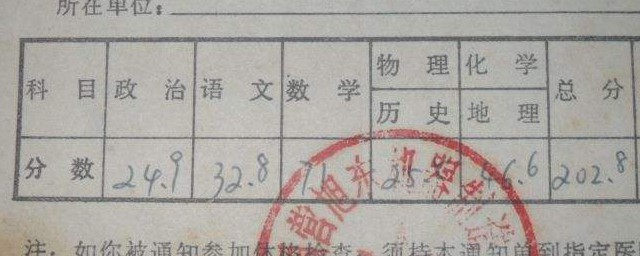 所在单位：
科 目 政 治 语 文 数 学 物 理 化 学 总 分
历 史 地 理
分 数 24.9 32.8 71 46.6 202.8
旭东
注：如你被通知参加体格检查，须持本通知单到指定医